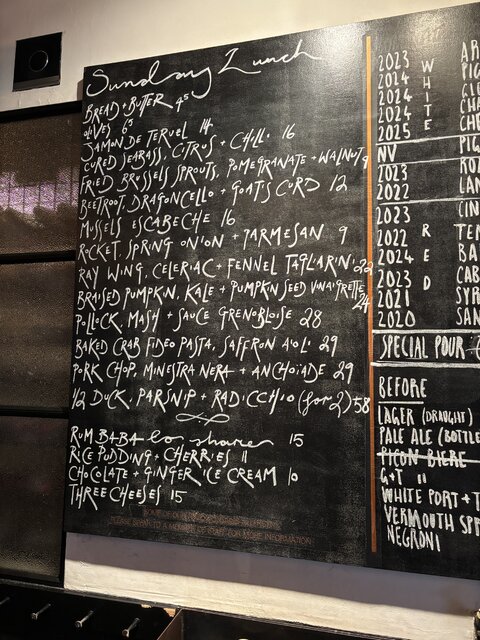 Sunday Lunch
BREAD + BUTTER 4.5
OLIVES 6.5
JAMON DE TERUEL 14
CURED SEABASS, CITRUS + CHILLI 16
FRIED BRUSSELS SPROUTS, POMEGRANATE + WALNUT 9
BEETROOT, DRAGONCELLO + GOATS CURD 12
MUSSELS ESCABECHE 16
ROCKET, SPRING ONION + PARMESAN 9
RAY WING, CELERIAC + FENNEL TAGLIARINI 22
BRAISED PUMPKIN, KALE + PUMPKIN SEED VINAIGRETTE 24
POLLOCK, MASH + SAUCE GRENOBLOISE 28
BAKED CRAB FIDEO PASTA, SAFFRON AIOLI 29
PORK CHOP, MINESTRA NERA + ANCHOIADE 29
1/2 DUCK, PARSNIP + RADICCHIO (for 2) 58
RUM BABA to share 15
RICE PUDDING + CHERRIES 11
CHOCOLATE + GINGER ICE CREAM 10
THREE CHEESES 15
PLEASE SPEAK TO A MEMBER OF STAFF FOR MORE INFORMATION
WHITE
2023 AR
2024 PIG
2024
2024 CHA
2025 CHE
NV PIG
2023 ROS
2022 LAN
RED
2023 CIN
2022 TEM
2024 BA
2023 CAB
2021 SYR
2020 SAN
SPECIAL POUR
BEFORE
LAGER (DRAUGHT)
PALE ALE (BOTTLE
PICON BIERE
G+T 11
WHITE PORT + T
VERMOUTH SPR
NEGRONI